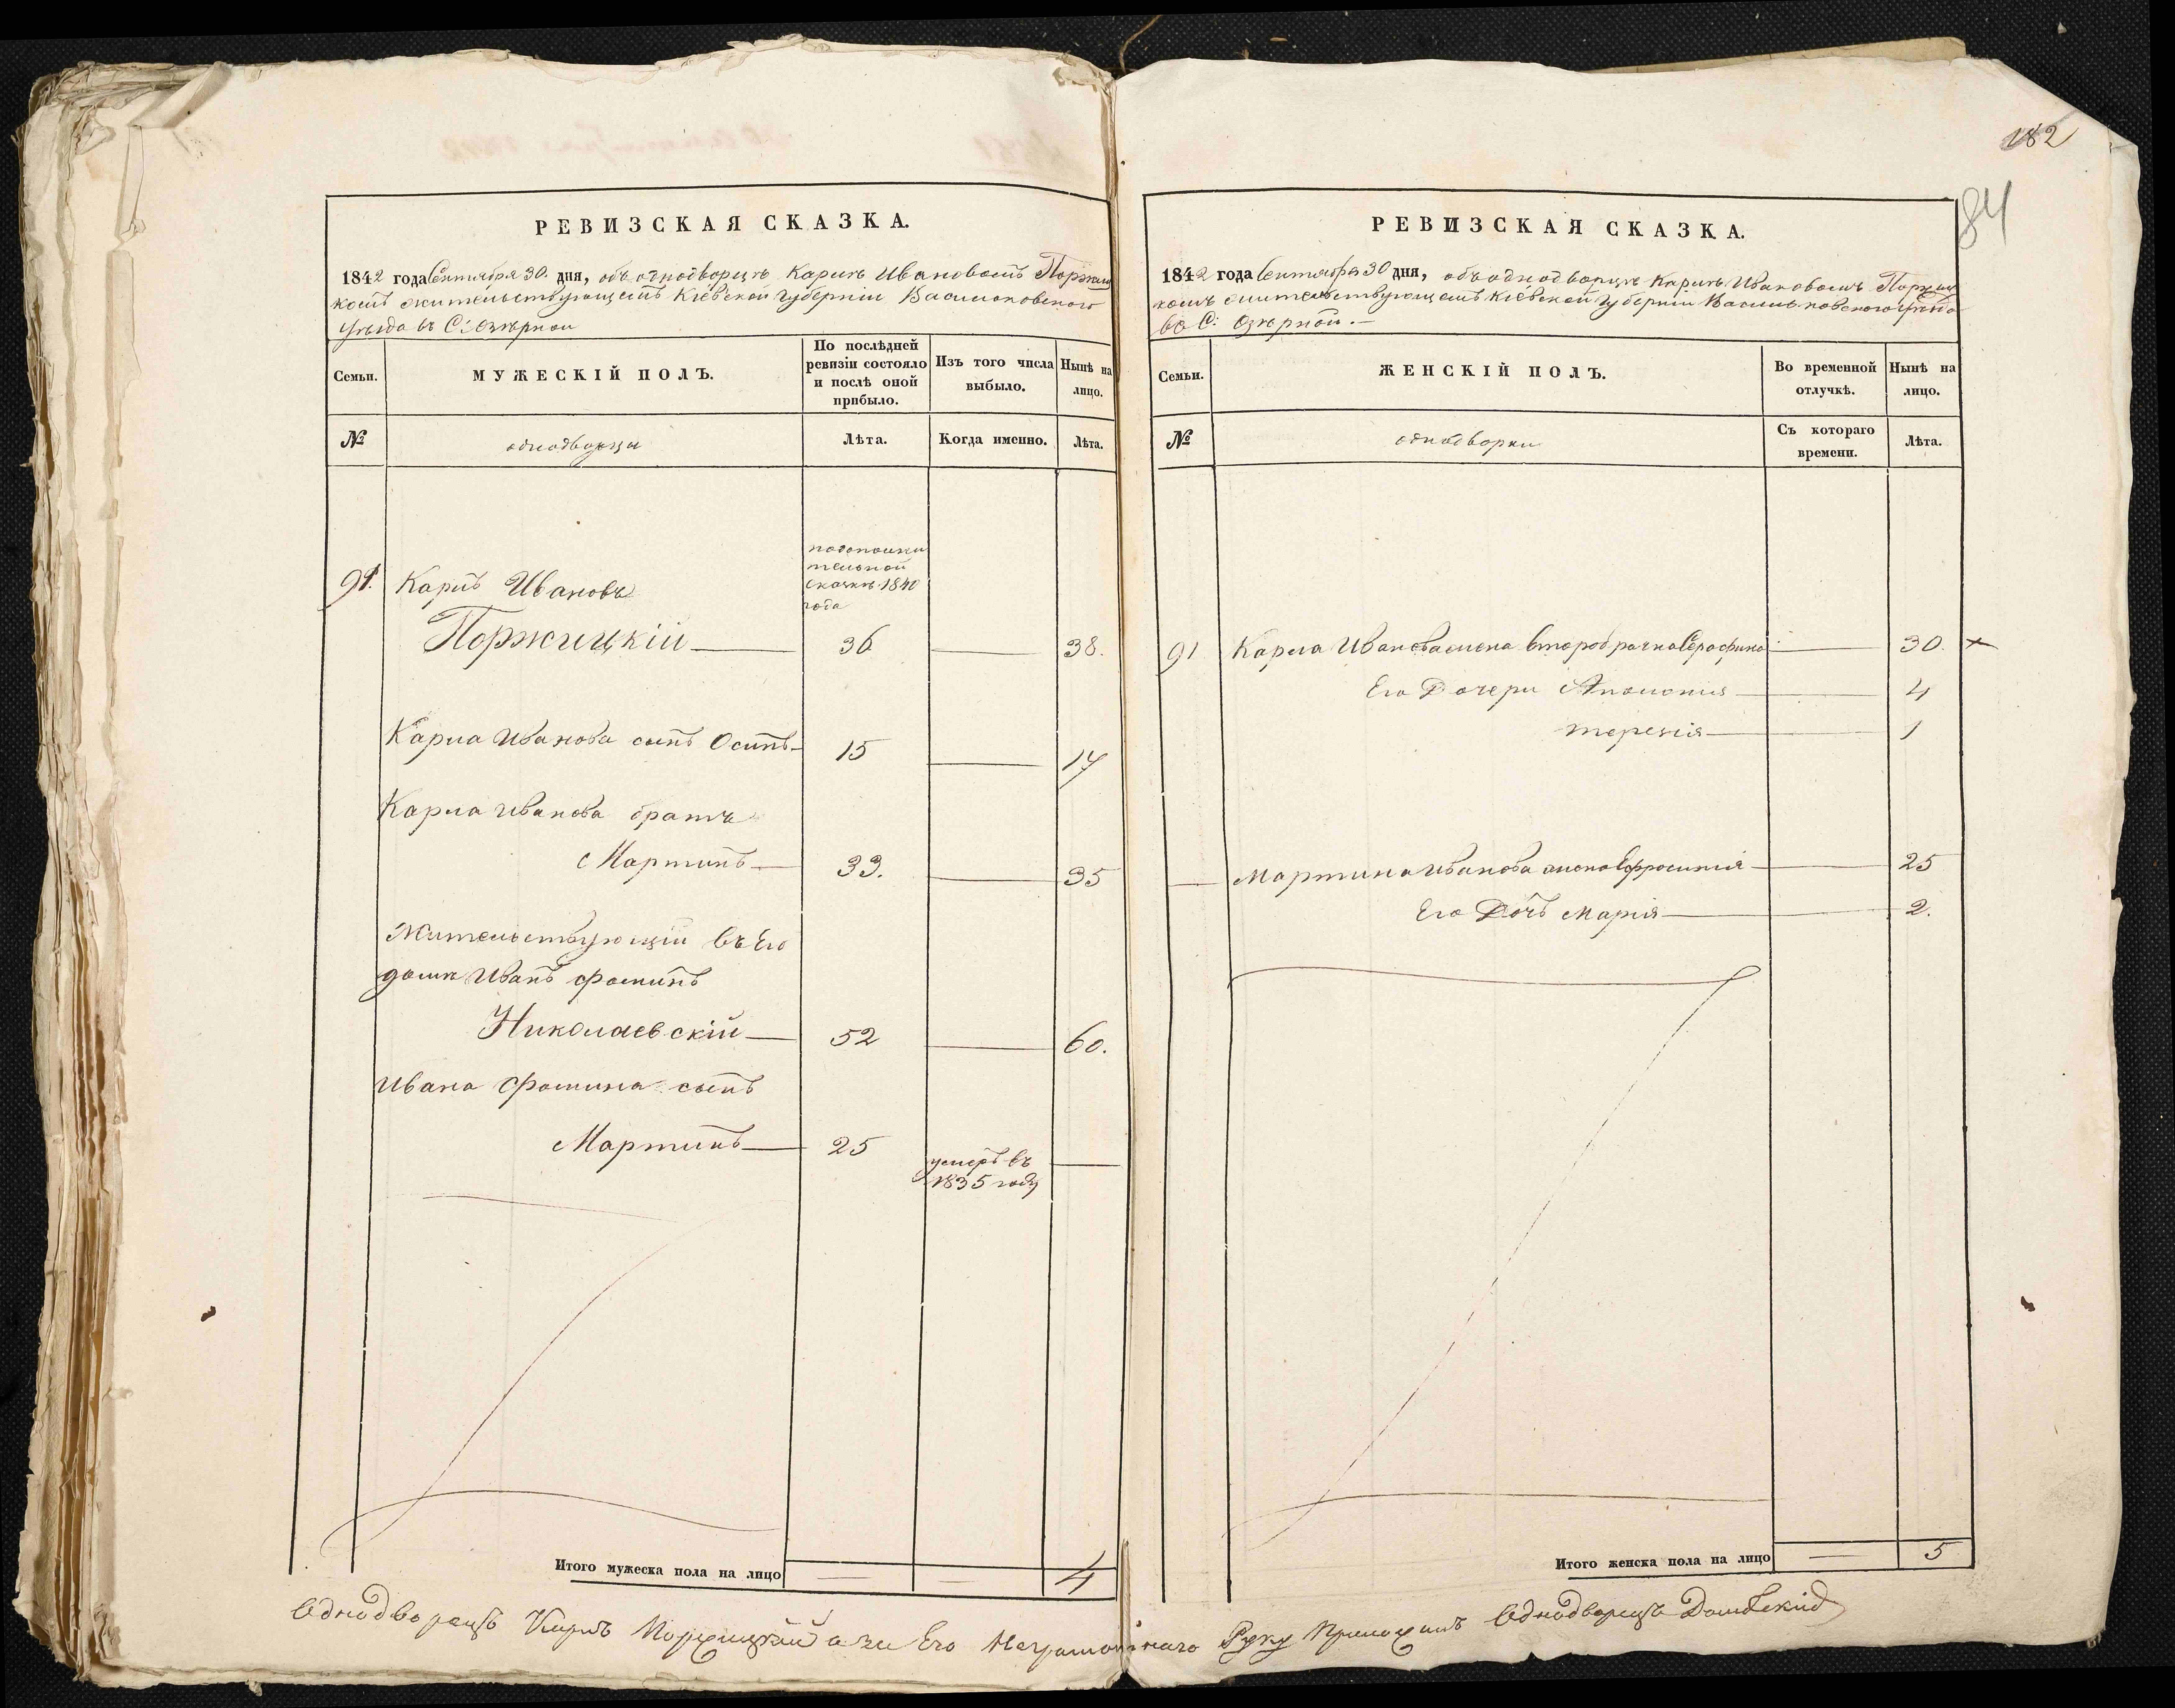 182
84
РЕВИЗСКАЯ СКАЗКА.
1842 года Сентября 30 дня, объ однодворцѣ Карлѣ Ивановомъ Поржиц
комъ жительствующемъ Кіевской губерніи Васильковского
уѣзда въ С: Озѣрной
Семьи.
МУЖЕСКІЙ ПОЛЪ.
По послѣдней
ревизіи состояло
и послѣ оной
прибыло.
Изъ того числа
выбыло.
Нынѣ на
лицо.
№
однодворцы
Лѣта.
Когда именно.
Лѣта.
91. Карлъ Ивановъ
подополни
тельной
сказкѣ 1840
года
Поржицкій 36 38.
Карла Иванова сынъ Осипъ 15 17
Карла Иванова братъ
Мартинъ 33. 35
Жительствующій въ Его
домѣ Иванъ Фоминъ
Николаевскій 52 60.
Ивана Фомина сынъ
Мартинъ 25 умеръ въ
1835 году
Итого мужеска пола на лицо 4
РЕВИЗСКАЯ СКАЗКА.
1842 года Сентября 30 дня, объ однодворцѣ Карлѣ Ивановомъ Поржиц
комъ жительствующемъ Кіевской губерніи Васильковского уѣзда
въ С: Озѣрной.
Семьи.
ЖЕНСКІЙ ПОЛЪ.
Во временной
отлучкѣ.
Нынѣ на
лицо.
№
однодворки
Съ котораго
времени.
Лѣта.
91 Карла Иванова жена второбрачна Серафина 30.
Его Дочери Аполонія 4
терезія 1
Мартина Иванова жена Ефросинія 25
Его Дочъ Марія 2.
Итого женска пола на лицо 5
Однодворецъ Карлъ Поржицкий а за Его Неграмотнаго Руку Приложилъ Однодворецъ